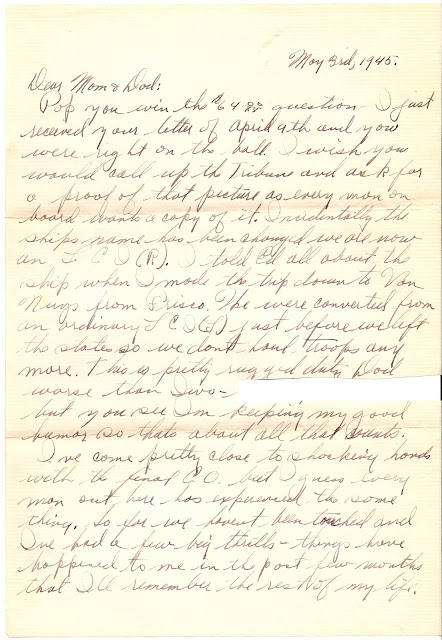 May 3rd, 1945.
Dear Mom & Dad:
Pop you win the $64 question - I just
received your letter of April 9th and you
were right on the ball. I wish you
would call up the Tribune and ask for
a proof of that picture as every man on
board wants a copy of it. Incidentally the
ships name has been changed we are now
an L C I (R). I told Ed all about the
ship when I made the trip down to Van
Nuys from Frisco. We were converted from
an ordinary L C I just before we left
the states so we dont haul troops any
more. This is pretty rugged duty Dad
worse than Iwo -
but you see I'm keeping my good
humor so thats about all that counts.
I've come pretty close to shocking hands
with the final C O. but I guess every
man out here has experienced the same
thing. So far we havent been touched and
I've had a few big thrills - things have
happened to me in the past few months
that I'll remember the rest of my life.